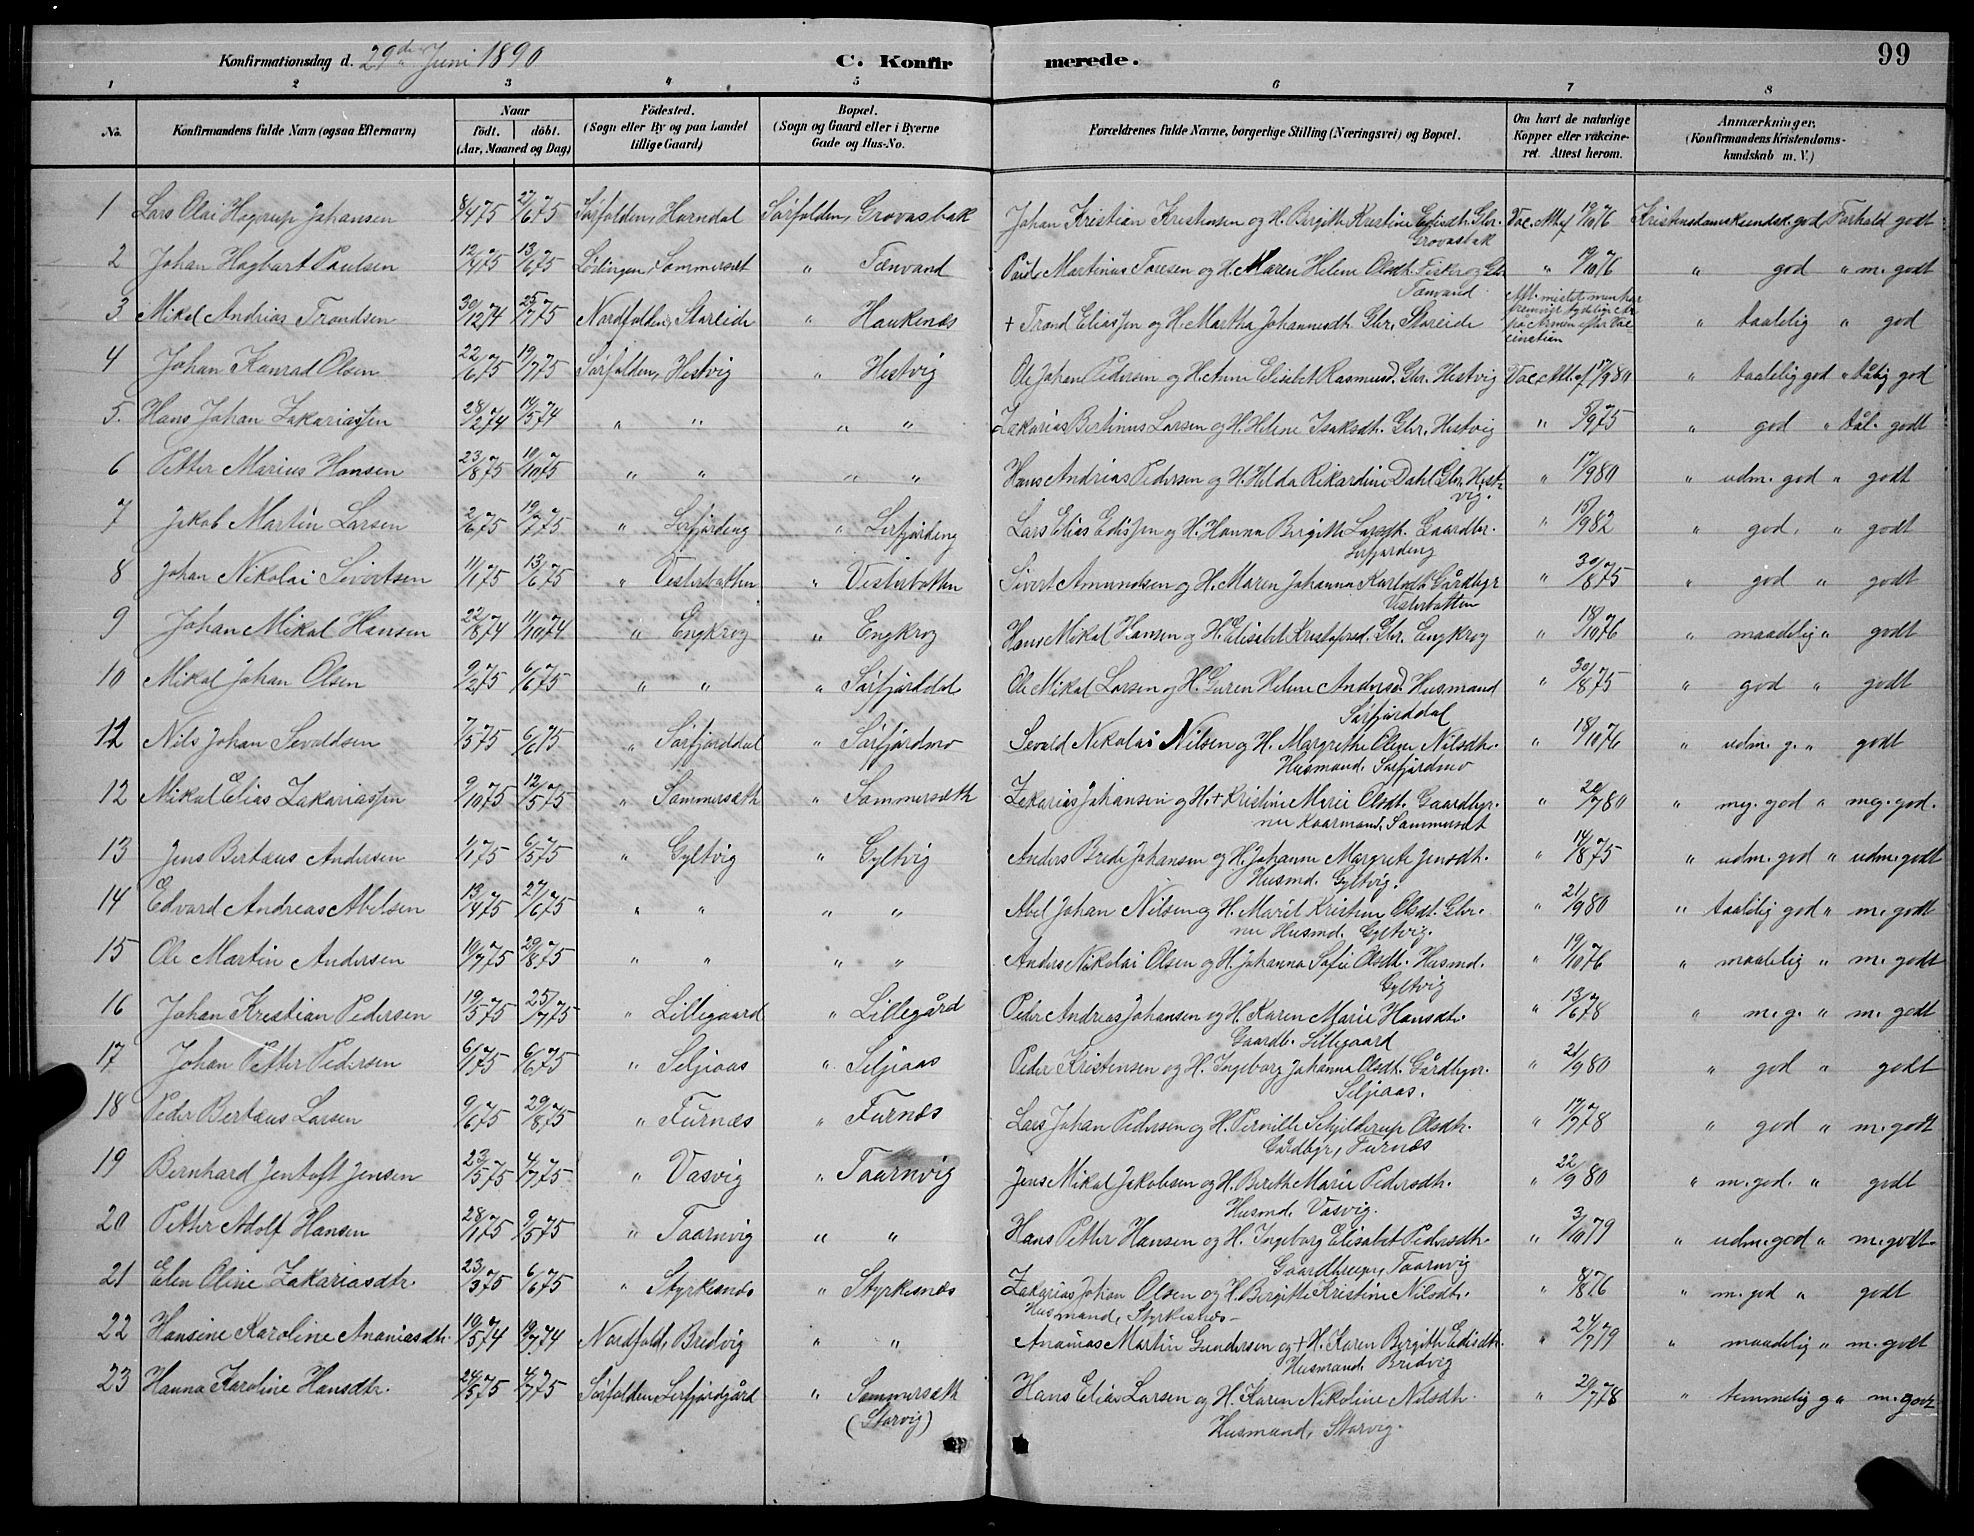 Konfirmationsdag d. 29de Juni 1890 C. Konfirmerede. 99
1 2 3 4 5 6 7 8
No. Konfirmandens fulde Navn (ogsaa Efternavn) Naar födt. döbt. (Aar, Maaned og Dag) Födested. (Sogn eller By og paa Landet tillige Gaard) Bopæl. (Sogn og Gaard eller i Byerne Gade og Hus-No. Forældrenes fulde Navne, borgerlige Stilling (Næringsvei) og Bopæl. Om havt de naturlige Kopper eller vakcineret. Attest herom. Anmærkninger, (Konfirmandens Kristendomskundskab m. V.)
1 Lars Olai Hagerup Johansen 8/4 75 27/6 75 Sörfolden, Horndal Sörfolden, Grovasbak Johan Kristian Kristensen og H. Birgitte Kristine Gbr. Vac. Att. af 19/10 76 Kristendomskundsk. god Forhold godt
Grovasbak
2 Johan Hagbart Paulsen 12/4 75 13/6 75 Lödingen, Sommerset " Tænvand Paul Martinus Toresen og H. Maren Helene Olsdt. Fisker og Gbr. " 19/10 76 " god " m. godt
Tænvand
3 Mikal Andrias Trondsen 30/12 74 25/7 75 Nordfolden, Storeide " Haukenæs + Trond Eliassen og H. Martha Johannesdt. Gbr. Storeide Att. mistet men har fremvist tydelige Ar på Armen efter Vaccination " taalelig " god
4 Johan Konrad Olsen 22/6 75 19/7 75 Sörfolden, Hestvig " Hestvig Ole Johan Pedersen og H. Anne Elisabet Rasmusd. Gbr. Hestvig Vac. Att. af 17/9 80 " taalelig god " tålig god
5. Hans Johan Zakariassen 28/2 74 14/5 74 " " " " Zakarias Bertinus Larsen og H. Helene Isaksdt. Gbr. Hestvig " 5/9 75 " god " tål. godt
6 Petter Marius Hansen 23/8 75 10/10 75 " " " " Hans Andrias Pedersen og H. Hilda Rikardine Dahl Gbr. Hestvig. " 17/9 80 " udm. god " godt
7 Jakob Martin Larsen 2/6 75 19/7 75 " Lerfjordeng " Lerfjordeng Lars Elias Edissen og H. Hanna Birgitte Larsdt. Gaardbr. " 15/9 82 " god. " godt
Lerfjordeng
8 Johan Nikolai Sivertsen 11/1 75 13/6 75 " Vesterbotten " Vesterbotten Sivert Amundsen og H. Maren Johanna Karlsdt. Gårdbgr " 30/8 75 " god " godt
Vesterbotten
9 Johan Mikal Hansen 22/8 74 11/10 74 " Engkrog " Engkrog Hans Mikal Hansen og H. Elisabet Kristofersd. Gbr. Engkrog " 18/10 76 " maadelig " godt
10 Mikal Johan Olsen 9/2 75 6/6 75 " " " Sörfjorddal Ole Mikal Larsen og H. Guren Helene Andersd. Husmand " 30/8 75 " god " godt
Sörfjorddal
12 Nils Johan Sevaldsen 7/3 75 6/6 75 " Sörfjorddal " Sörfjordmo Sevald Nikolai Nilsen og H. Margrethe Oline Nilsdtr. " 18/10 76 " udm. g. " godt
Husmand, Sörfjordmo
12 Mikal Elias Zakariassen 9/10 75 12/5 75 " Sommersæth " Sommersæth Zakarias Johansen og H. + Kristine Marie Olsdt. Gaardbgr. " 20/7 80 " meg. god " meg. god.
nu Kaarmand, Sommersæt
13 Jens Bertæus Andersen 1/1 75 6/5 75 " Gyltvig " Gyltvig Anders Brede Johansen og H. Johanne Margrete Jensdt. " 14/8 75 " udm. god " udm. godt
Husmd. Gyltvig.
14 Edvard Andreas Abelsen 13/4 75 27/6 75 " " " " Abel Johan Nilsen og H. Marit Kristine Olsdt. Gbr. " 21/9 80 " taalelig god " m. godt
nu Husmd. Gyltvig.
15 Ole Martin Andersen 10/7 75 29/8 75 " " " " Anders Nikolai Olsen og H. Johanna Sofie Olsdt. Husmd. " 19/10 76 " maadelig " m. godt
Gyltvig
16 Johan Kristian Pedersen 19/5 75 25/7 75 " Lillegaard " Lillegård Peder Andreas Johansen og H. Karen Marie Hansdt. " 13/6 78 " m. g. " m. godt
Gaardb. Lillegaard
17 Johan Petter Pedersen 6/1 75 6/6 75 " Seljeaas " Seljeaas Peder Kristensen og H. Ingeborg Johanna Olsdt. Gårdbgr. " 21/9 80 " god " godt
Seljeaas.
18 Peder Bertæus Larsen 9/6 75 29/8 75 " Furnæs " Furnæs Lars Johan Pedersen og H. Pernille Schjelderup Olsdt. " 17/7 78 " god " m. godt
Gårdbgr, Furnæs
19 Bernhard Jentoft Jensen 23/5 75 4/7 75 " Vasvig " Taarnvig Jens Mikal Jakobsen og H. Berith Marie Pedersdt. " 22/9 80 " m. god. " godt
Husmd. Vasvig.
20 Petter Adolf Hansen 28/1 75 9/5 75 " Taarnvig " " Hans Petter Hansen og H. Ingeborg Elisabet Pedersdt. " 3/10 79 " udm. god " m. godt
Gaardbruger, Taarnvig
21 Elen Oline Zakariasdtr. 23/3 75 6/6 75 " Styrkesnæs " Styrkesnæs Zakarias Johan Olsen og H. Birgitte Kristine Nilsdt. " 8/8 76 " m. god " godt
Husmand, Styrkesnæs
22 Hansine Karoline Ananiasdtr. 10/5 74 19/7 74 Nordfold, Bredvig " " Ananias Martin Gundersen og + H. Karen Birgitte Edisdt. " 24/7 79 " maadelig " m. godt
Husmand, Bredvig
23 Hanna Karoline Hansdtr. 24/5 75 4/7 75 Sörfolden, Lerfjordgård " Sommersæth Hans Elias Larsen og H. Karen Nikoline Nilsdt. " 20/7 78 " temmelig g " m. godt
(Storvig) Husmand, Storvig.